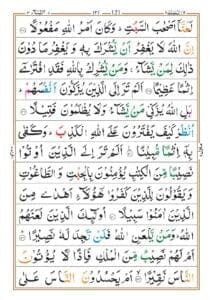 لَعَنَّآ اَصْحٰبَ السَّبْتِ ؕ وَكَانَ اَمْرُ اللّٰهِ مَفْعُوْلًا
اِنَّ اللّٰهَ لَا يَغْفِرُ اَنْ يُّشْرَكَ بِهٖ وَيَغْفِرُ مَا دُوْنَ
ذٰلِكَ لِمَنْ يَّشَآءُ ۚ وَمَنْ يُّشْرِكْ بِاللّٰهِ فَقَدِ افْتَرٰٓى
اِثْمًا عَظِيْمًا اَلَمْ تَرَ اِلَى الَّذِيْنَ يُزَكُّوْنَ اَنْفُسَهُمْ ؕ
بَلِ اللّٰهُ يُزَكِّيْ مَنْ يَّشَآءُ وَلَا يُظْلَمُوْنَ فَتِيْلًا
اُنْظُرْ كَيْفَ يَفْتَرُوْنَ عَلَى اللّٰهِ الْكَذِبَ ؕ وَكَفٰى
بِهٖٓ اِثْمًا مُّبِيْنًا اَلَمْ تَرَ اِلَى الَّذِيْنَ اُوْتُوْا
نَصِيْبًا مِّنَ الْكِتٰبِ يُؤْمِنُوْنَ بِالْجِبْتِ وَالطَّاغُوْتِ
وَيَقُوْلُوْنَ لِلَّذِيْنَ كَفَرُوْا هٰٓؤُلَآءِ اَهْدٰى مِنَ
الَّذِيْنَ اٰمَنُوْا سَبِيْلًا اُولٰٓئِكَ الَّذِيْنَ لَعَنَهُمُ
اللّٰهُ ؕ وَمَنْ يَّلْعَنِ اللّٰهُ فَلَنْ تَجِدَ لَهٗ نَصِيْرًا
اَمْ لَهُمْ نَصِيْبٌ مِّنَ الْمُلْكِ فَاِذًا لَّا يُؤْتُوْنَ
النَّاسَ نَقِيْرًا اَمْ يَحْسُدُوْنَ النَّاسَ عَلٰى